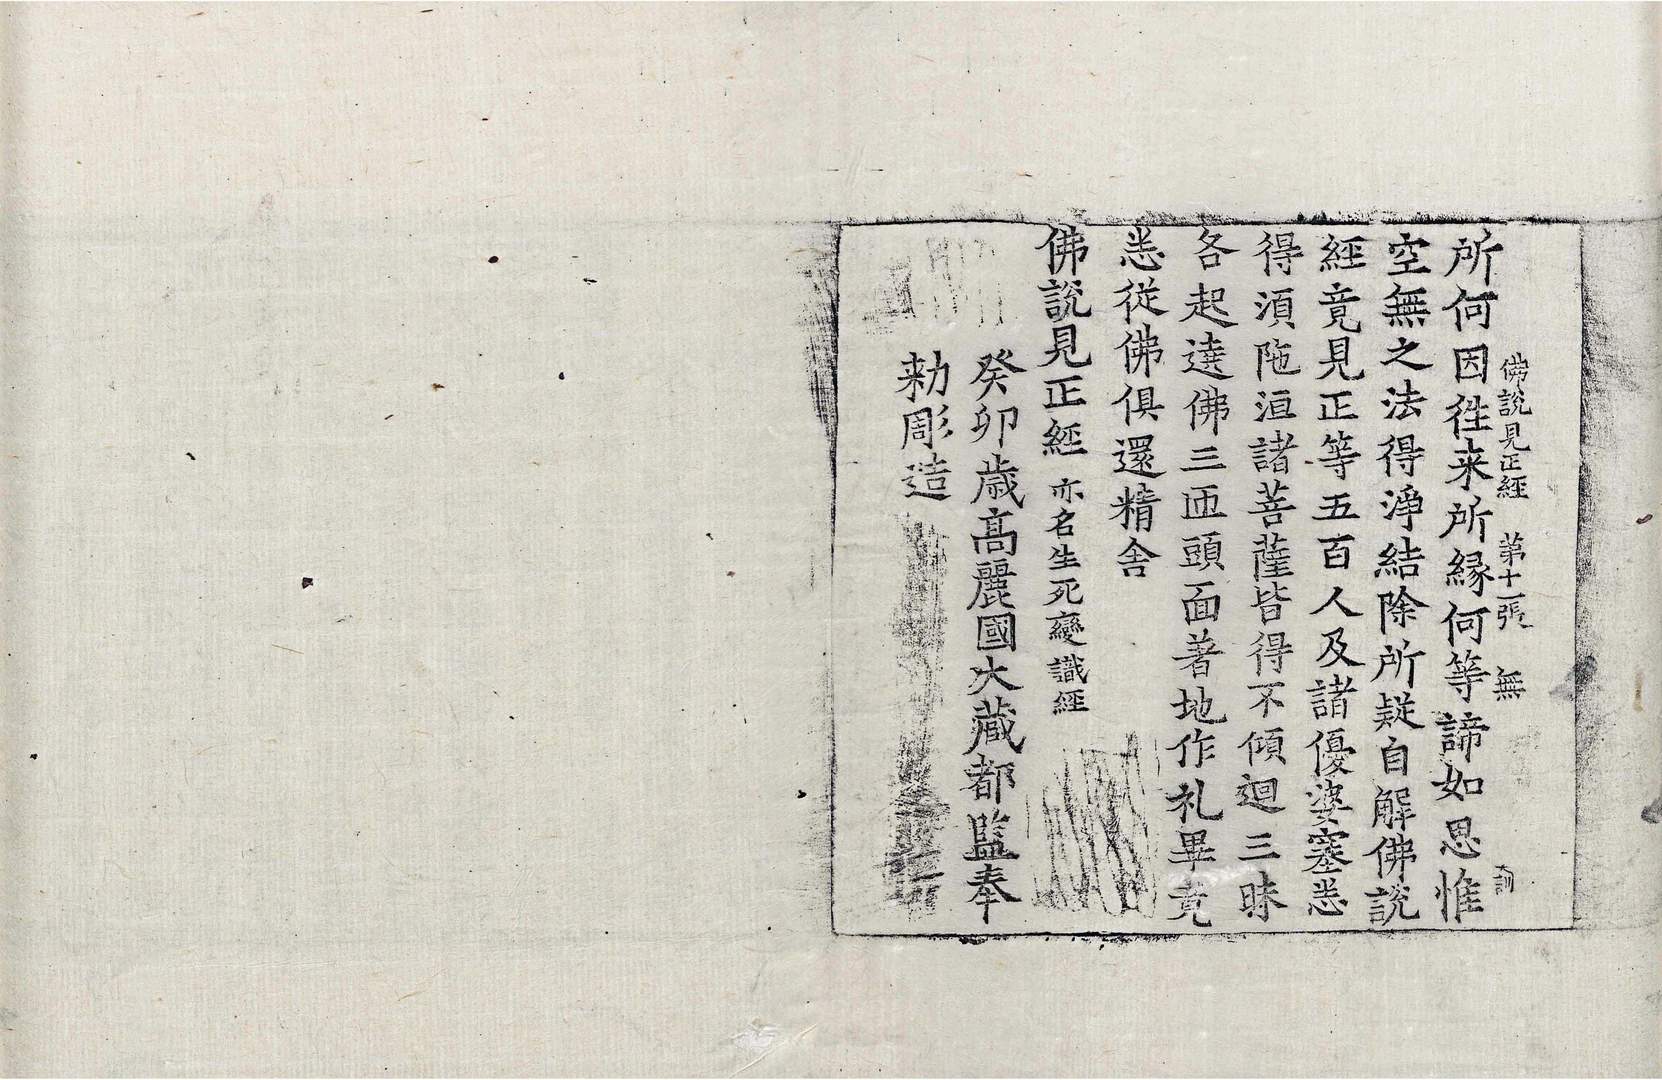 佛說見正經 第十一張 無 大訓
所何因徃来所緣何等諦如思惟
空無之法得淨結除所疑自解佛說
經竟見正等五百人及諸優婆塞悉
得湏陁洹諸菩薩皆得不傾迴三昧
各起遶佛三匝頭面著地作礼畢竟
悉從佛俱還精舍
佛說見正經 亦名生死變識經
癸卯歲髙麗國大藏都監奉
勑彫造